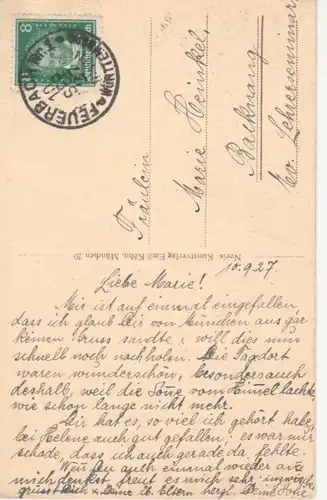 8
FEUERBACH
WÜRTTEMBERG
Fräulein
Marie Heinkel,
Backnang
Ev. Lehrerseminar
Noris Kunstverlag Emil Köhn, München 20
10.9.27.
Liebe Marie!
Mir ist auf einmal eingefallen,
dass ich glaub Dir von München aus gar
keinen Gruss sandte & will dies nun
schnell noch nachholen. Die Tage dort
waren wunderschön, besonders auch
deshalb, weil die Sonne vom Himmel lachte,
wie schon lange nicht mehr.
Dir hat es, so viel ich gehört habe,
bei Helene auch gut gefallen, es war mir
schade, dass ich auch gerade da fehlte.
Wenn Du auch einmal wieder an
mich denkst freut es mich sehr
grüsst Dich & Deine lb. Eltern herzl. Deine